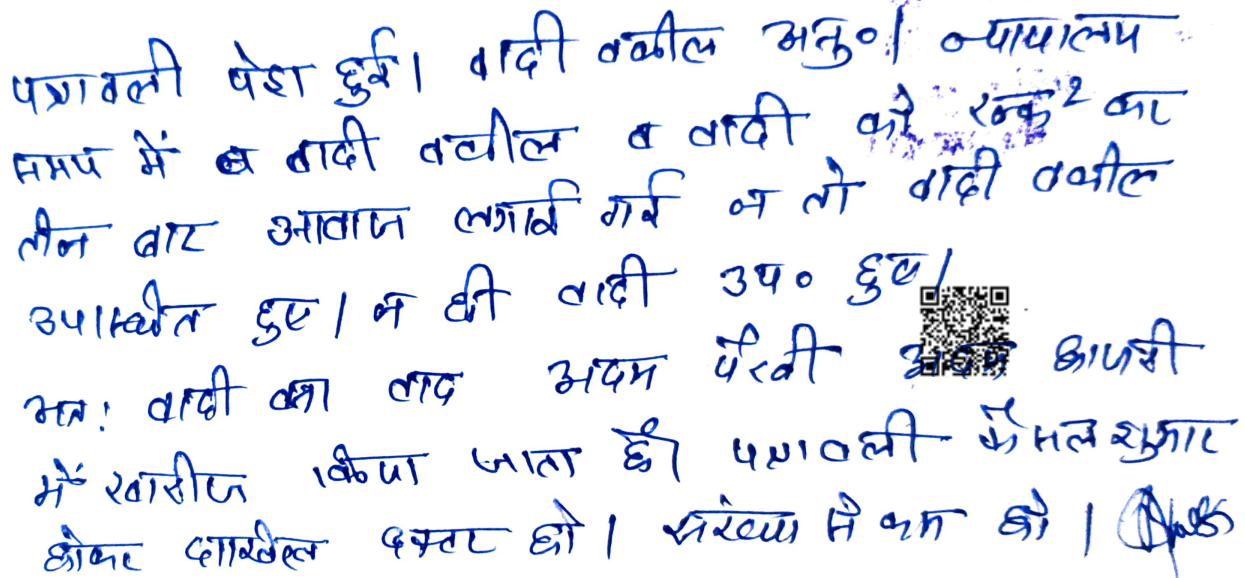 पत्रावली पेश हुई। वादी वकील अनु०। न्यायालय
समय में व वादी वकील व वादी को रुक रुक कर
तीन बार आवाज लगाई गई न तो वादी वकील
उपस्थित हुए। न ही वादी उप० हुए।
अतः वादी का वाद अदम पैरवी अदम हाजरी
में खारीज किया जाता है। पत्रावली फैसल शुमार
होकर दाखिल दफ्तर हो। संख्या से कम हो।